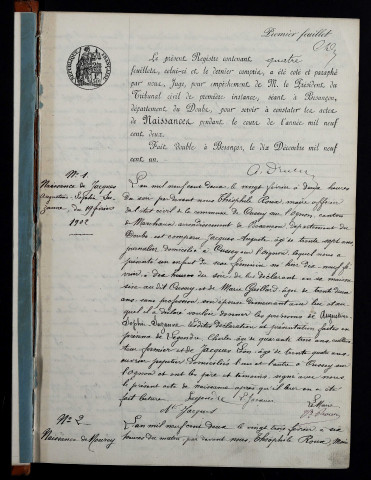 Premier feuillet
Le présent Registre contenant quatre
feuillets, celui-ci et le dernier compris, a été coté et paraphé
par nous, Juge, pour empêchement de M. le Président du
Tribunal civil de première instance, séant à Besançon,
département du Doubs, pour servir à constater les actes
de Naissances pendant le cours de l'année mil neuf
cent deux.
Fait double à Besançon, le dix Décembre mil neuf
cent un.
N° 1
Naissance de Jacques
Augustine Sophie Su-
zanne, du 19 février
1902
L'an mil neuf cent deux, le vingt février à deux heures
du soir par devant nous Théophile Roux, maire officier
de l'état civil de la commune de Cussey sur l'Ognon, canton
de Marchaux, arrondissement de Besançon, département du
Doubs, est comparu Jacques Auguste, âgé de trente sept ans,
journalier domicilié à Cussey sur l'Ognon, lequel nous a
présenté un enfant du sexe féminin né hier dix-neuf fé-
vrier, à dix heures du soir, de lui déclarant en sa maison
sise au dit Cussey et de Marie Guillard, âgée de trente deux
ans, sans profession, son épouse demeurant avec lui et au-
quel il a déclaré vouloir donner les prénoms de Augustine
Sophie Suzanne. Lesdites déclaration et présentation faites en
présence de Charles âgé de quarante trois ans, culti-
vateur, premier et de Jacques Léon âgé de trente quatre ans,
ouvrier papetier domiciliés l'un et l'autre à Cussey sur
l'Ognon et ont les père et témoins signé avec nous
le présent acte de naissance après qu'il leur en a été
fait lecture.
Le Maire
Jacques
N° 2
Naissance de
L'an mil neuf cent deux le vingt trois février à six
heures du matin, par devant nous, Théophile Roux, Maire